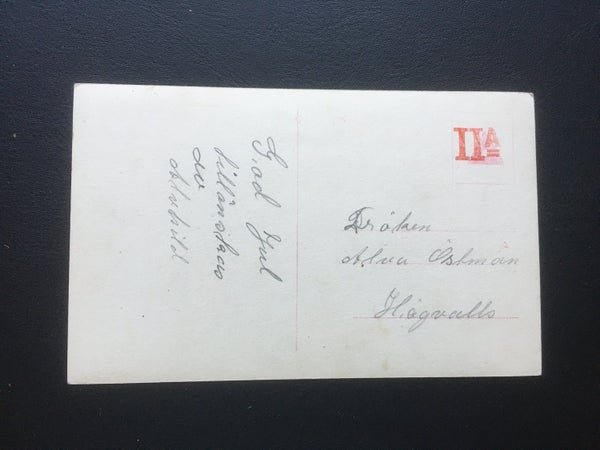 God Jul
tillönskas
av
Alvhild
IIA
Fröken
Alva Östman
Högvalls